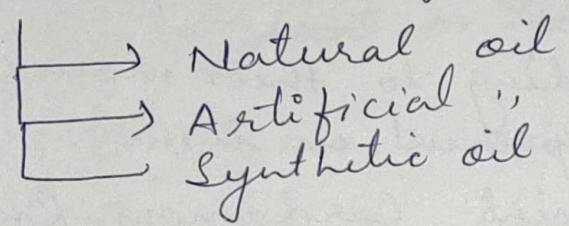 Natural oil
Artificial "
Synthetic oil